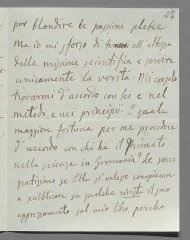 per blandire le passioni plebee
Ma io mi sforzo di tenermi all'altezza
della missione scientifica e provare
unicamente la verità. Mi consolo
trovarmi d'accordo con lei e nel
metodo e nei principii. E quale
maggior fortuna per me procedere
d'accordo con chi ha il primato
nella scienza in Germania! Le sarei
gratissimo se Ella si volesse compiacere
a pubblicare su qualche rivista il suo
apprezzamento sul mio libro, perchè